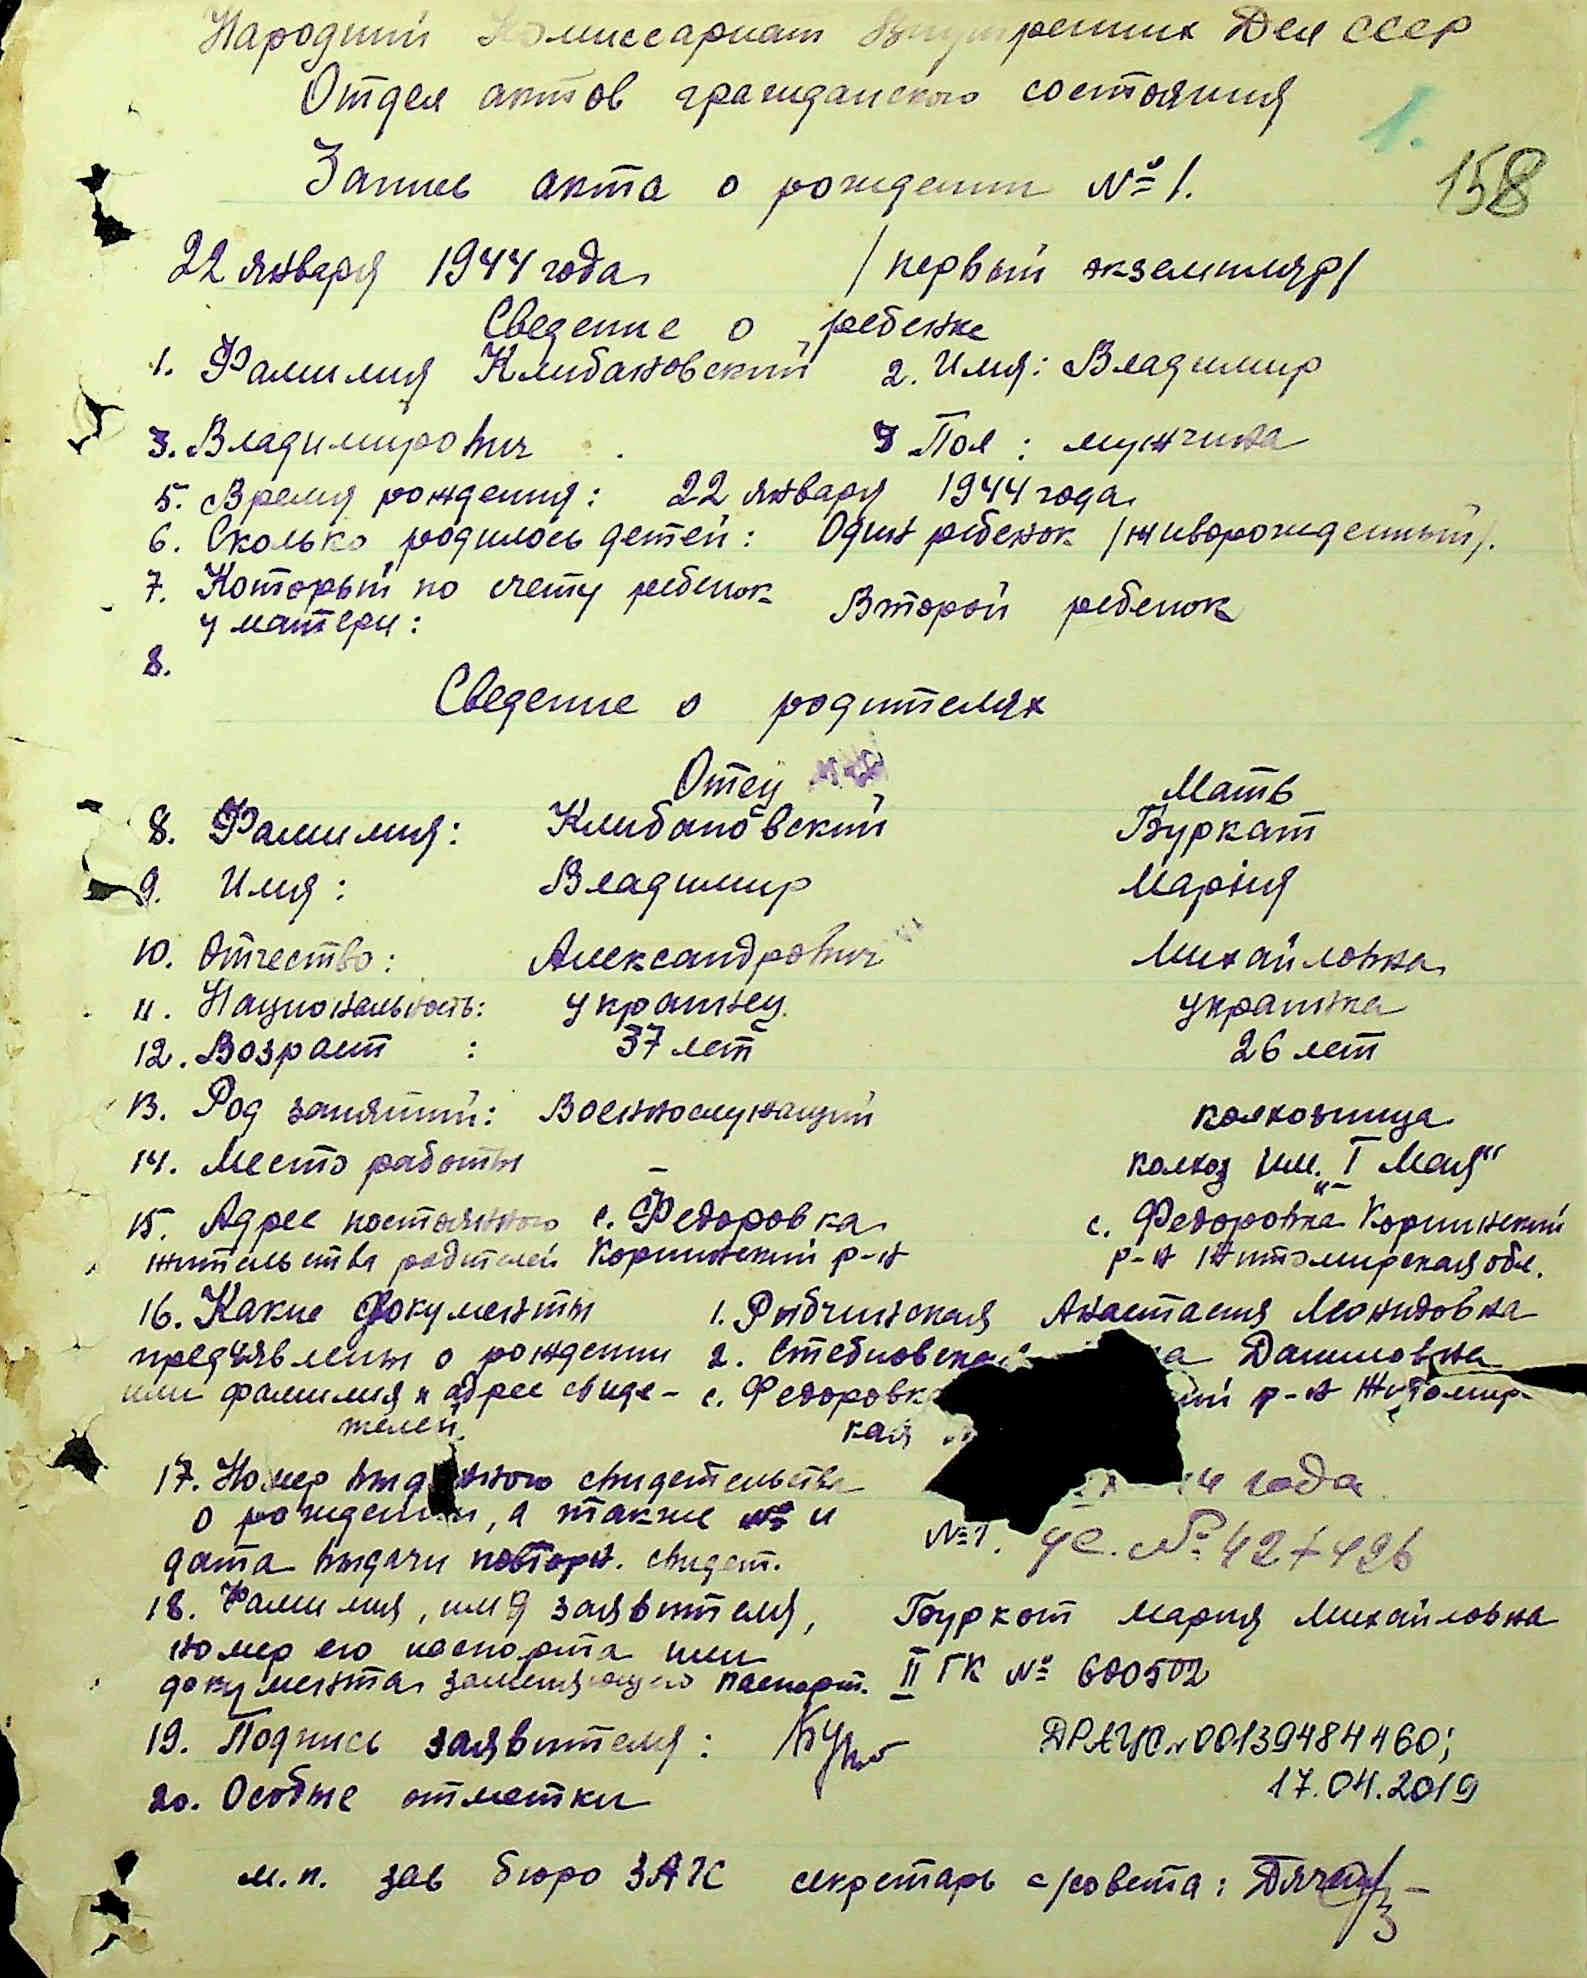 Народный Комиссариат Внутренних Дел СССР
Отдел актов гражданского состояния
1.
158
Запись акта о рождении №1.
22 января 1944 года /первый экземпляр/
Сведение о ребенке
1. Фамилия Клибановский 2. Имя: Владимир
3. Владимирович Пол: мужчина
5. Время рождения: 22 января 1944 года.
6. Сколько родилось детей: Один ребенок /живорожденный/.
7. Который по счету ребенок Второй ребенок
у матери:
8.
Сведение о родителях
Отец Мать
8. Фамилия: Клибановский Буркат
9. Имя: Владимир Марія
10. Отчество: Александрович Михайловна
11. Национальность: украинец украинка
12. Возраст : 37 лет 26 лет
13. Род занятий: Военнослужащий колхозница
14. Место работы – колхоз им. "I Мая"
15. Адрес постоянного с. Федоровка с. Федоровка
жительства родителей р-н р-н Житомирская обл.
16. Какие документы 1. Рибчинская Анастасия Леонидовна
предъявлены о рождении 2. Даниловна
или фамилия и адрес свиде- с. Федоровка р-н Житомир-
телей. кая
17. Номер выданного свидетельства года
о рождении, а также № и №1.
дата выдачи повторн. свидет.
18. Фамилия, имя заявителя, Буркот Мария Михайловна
номер его паспорта или
документа заменяющего паспорт. II ГК № 680502
19. Подпись заявителя: ДРАЦС №00139484460;
17.04.2019
20. Особые отметки
м.п. зав бюро ЗАГС секретарь с/совета: